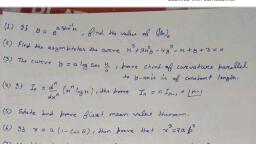 (1) If y = e^{a sin⁻¹x}, find the value of (yₙ)₀
(2) Find the asymptotes the curve x³+3x²y-4y³-x+y+3=0
(3) The curve y = a log sec x/a, prove chord of curvature parallel
to y-axis is of constant length.
(4) If Iₙ = dⁿ/dxⁿ (xⁿ log x), the prove Iₙ = n Iₙ₋₁ + |n-1
(5) State and prove mean value theorem.
(6) If r = a (1-cosθ), then prove that